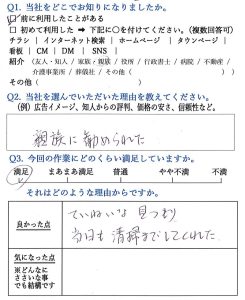 Q1. 当社をどこでお知りになりましたか。
前に利用したことがある
□ 初めて利用した ⇒ 下記に○を付けてください。(複数回答可)
チラシ | インターネット検索 | ホームページ | タウンページ |
看板 | CM | DM | SNS |
紹介 (友人・知人 / 家族・親族 / 役所 / 行政書士 / 病院 / 不動産 /
介護事業所 / 葬儀社 / その他( ))
その他( )
Q2. 当社を選んでいただいた理由を教えてください。
(例) 広告イメージ、知人からの評判、価格の安さ、信頼性など。
親族に勧められた
Q3. 今回の作業にどのくらい満足していますか。
満足 まあまあ満足 普通 やや不満 不満
それはどのような理由からですか。
良かった点
ていねいな見つもり
当日も清掃までしてくれた
気になった点
※どんなに
ささいな事
でも結構です